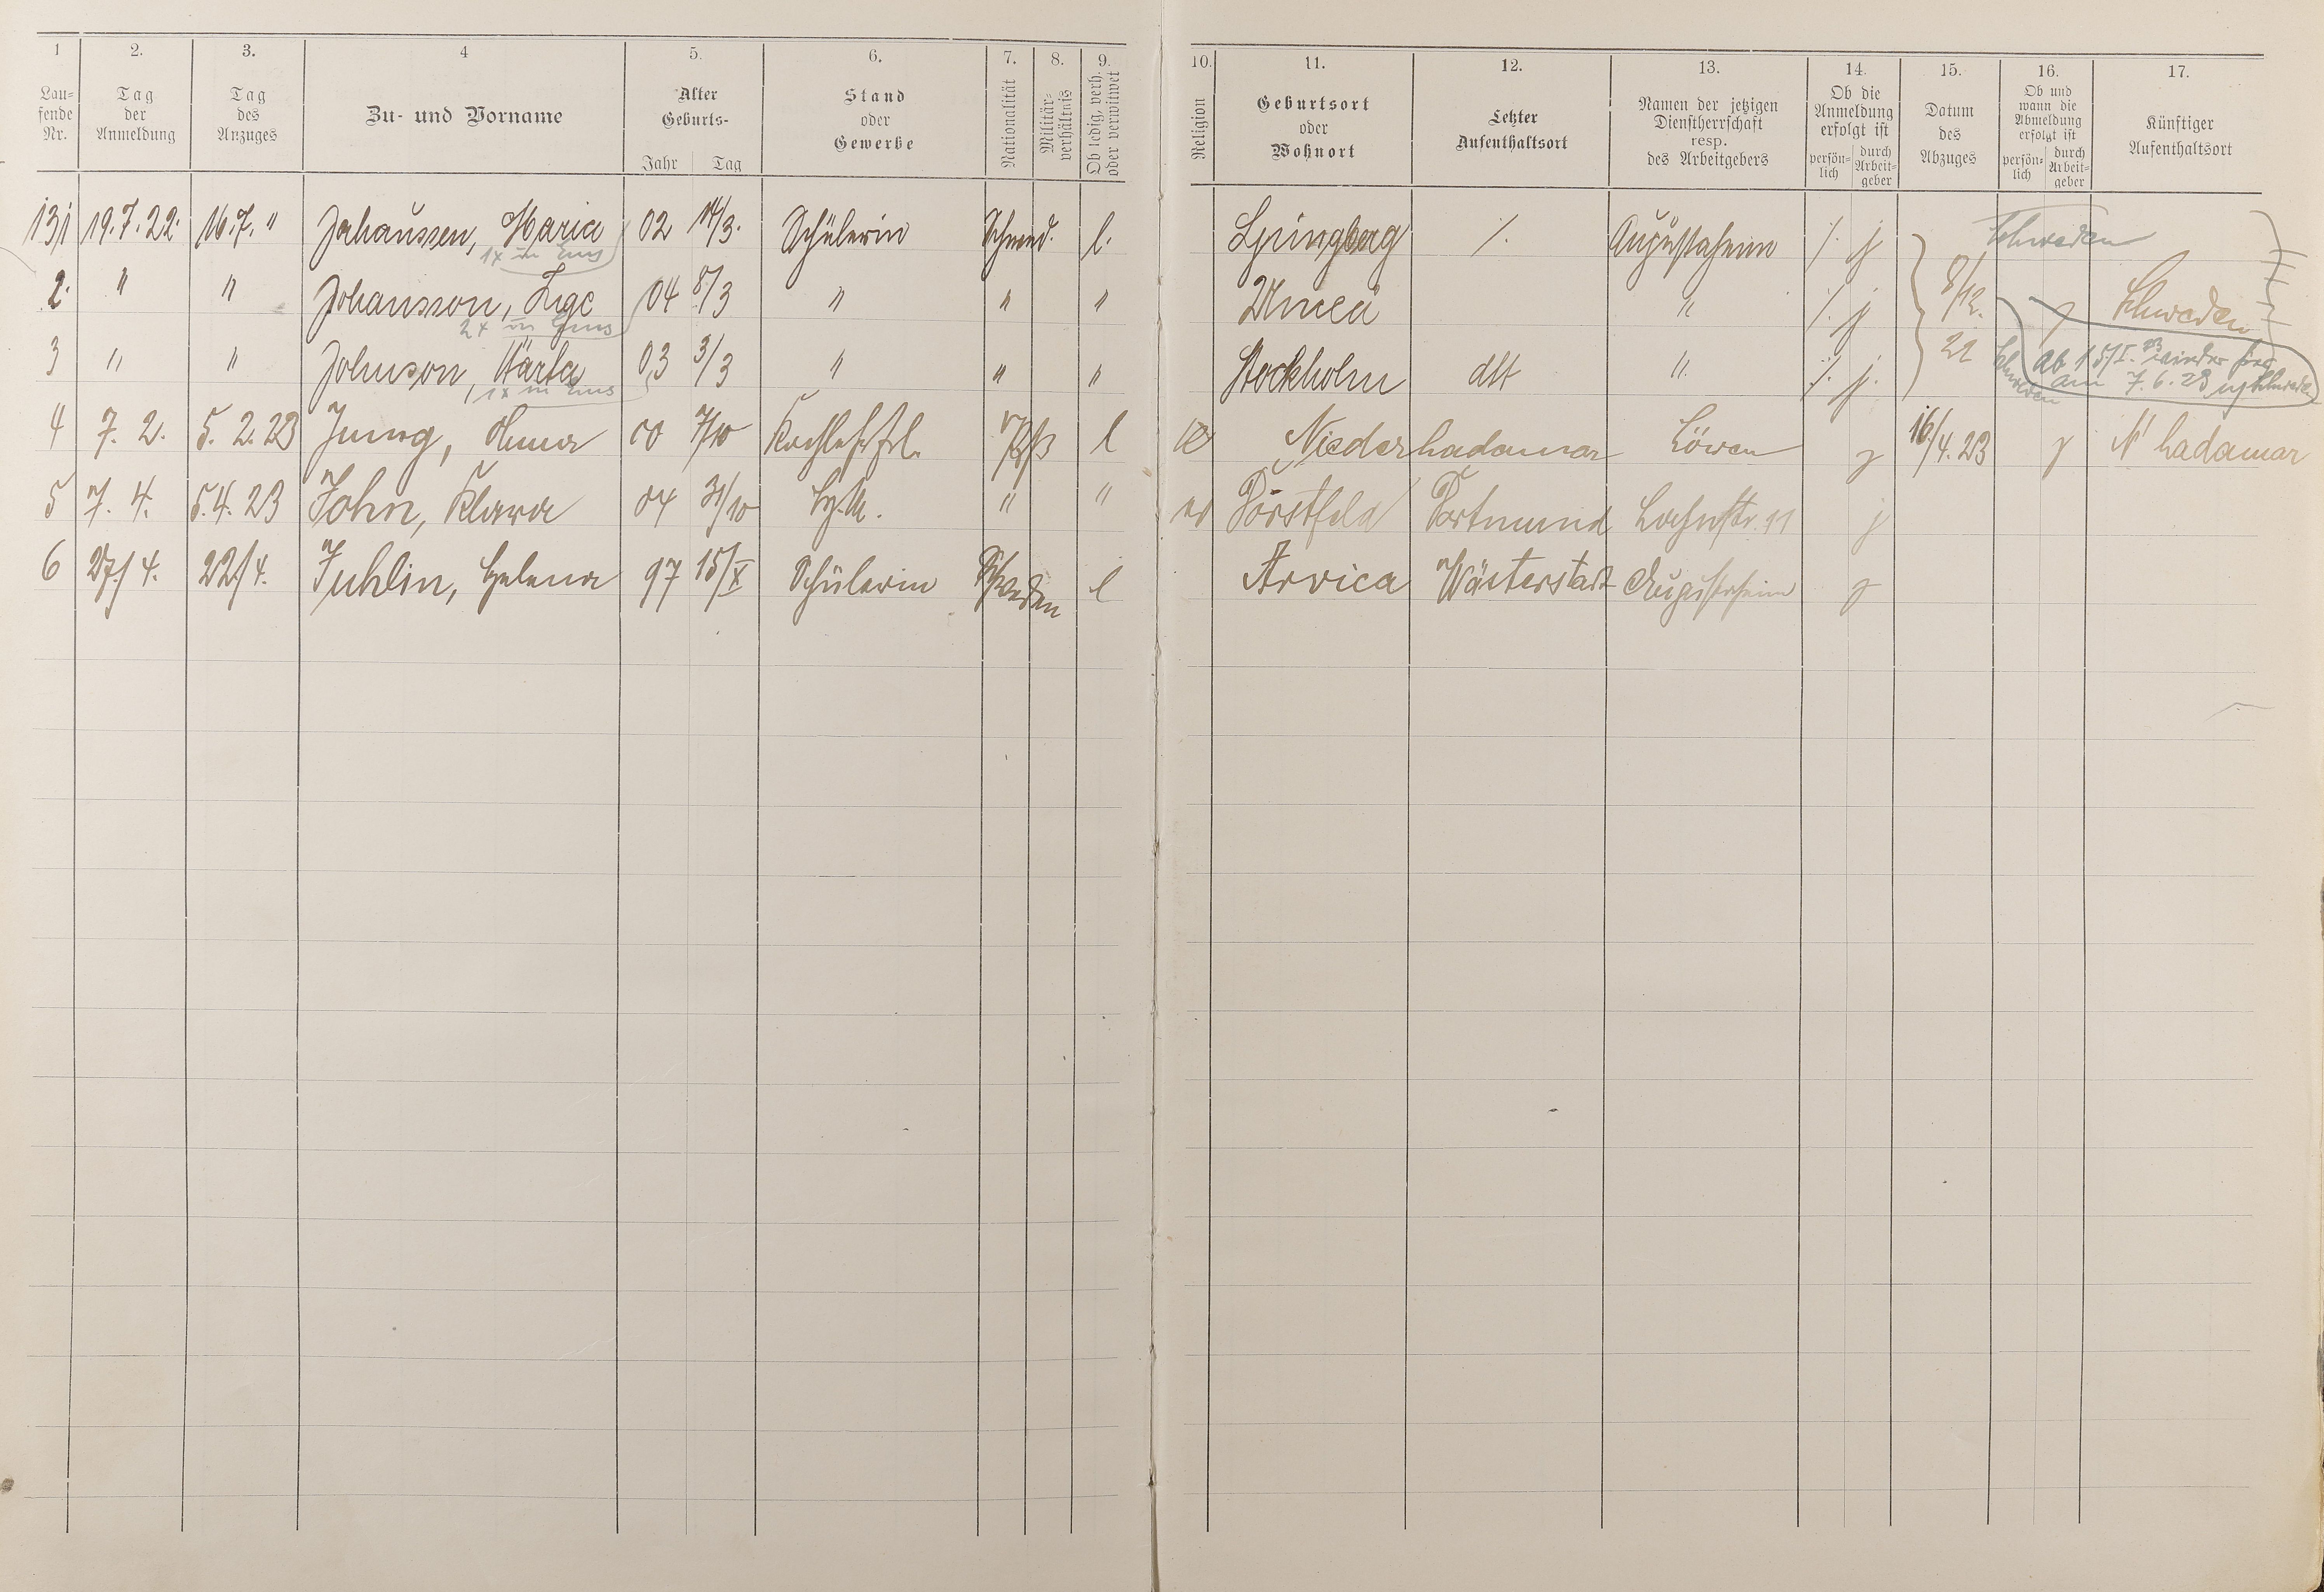 1 2. 3. 4 5. 6. 7. 8. 9. 10. 11. 12. 13. 14. 15. 16. 17.
Lau-
fende
Nr.
Tag
der
Anmeldung
Tag
des
Anzuges
Zu- und Vorname
Alter
Geburts-
Jahr Tag
Stand
oder
Gewerbe
Nationalität
Militär-
verhältnis
Ob ledig, verh.
oder verwitwet
Religion
Geburtsort
oder
Wohnort
Letzter
Aufenthaltsort
Namen der jetzigen
Dienstherrschaft
resp.
des Arbeitgebers
Ob die
Anmeldung
erfolgt ist
persön-
lich
durch
Arbeit-
geber
Datum
des
Abzuges
Ob und
wann die
Abmeldung
erfolgt ist
persön-
lich
durch
Arbeit-
geber
Künftiger
Aufenthaltsort
131 19.7.22. 16.7. " Johaussen, Maria 02 14/3. Schülerin Schwed. l. Ljungberg /. Augustaheim /. j Schweden
1x in Ems
2. " " Johansson, 04 8/3 " " " Umeå " /. j 8/12. Schweden
2x in Ems
3 " " Johnson, Märta 03 3/3 " " " Stockholm dlt " /. j. 22 Schweden
1x in Ems
ab wieder hier
am 7.6.23 Schweden
4 7. 2. 5. 2. 23 Jung, Anna 00 7/10 l Niederhadamar Löwen j 16/4.23 j N'hadamar
5 7. 4. 5.4. 23 John, Klara 04 31/10 " " Dorstfeld Dortmund Lahnstr. 11 j
6 27/4. 22/4. Juhlin, Helena 97 15/X Schülerin Schweden l Arvica Wästerstadt Augustaheim j